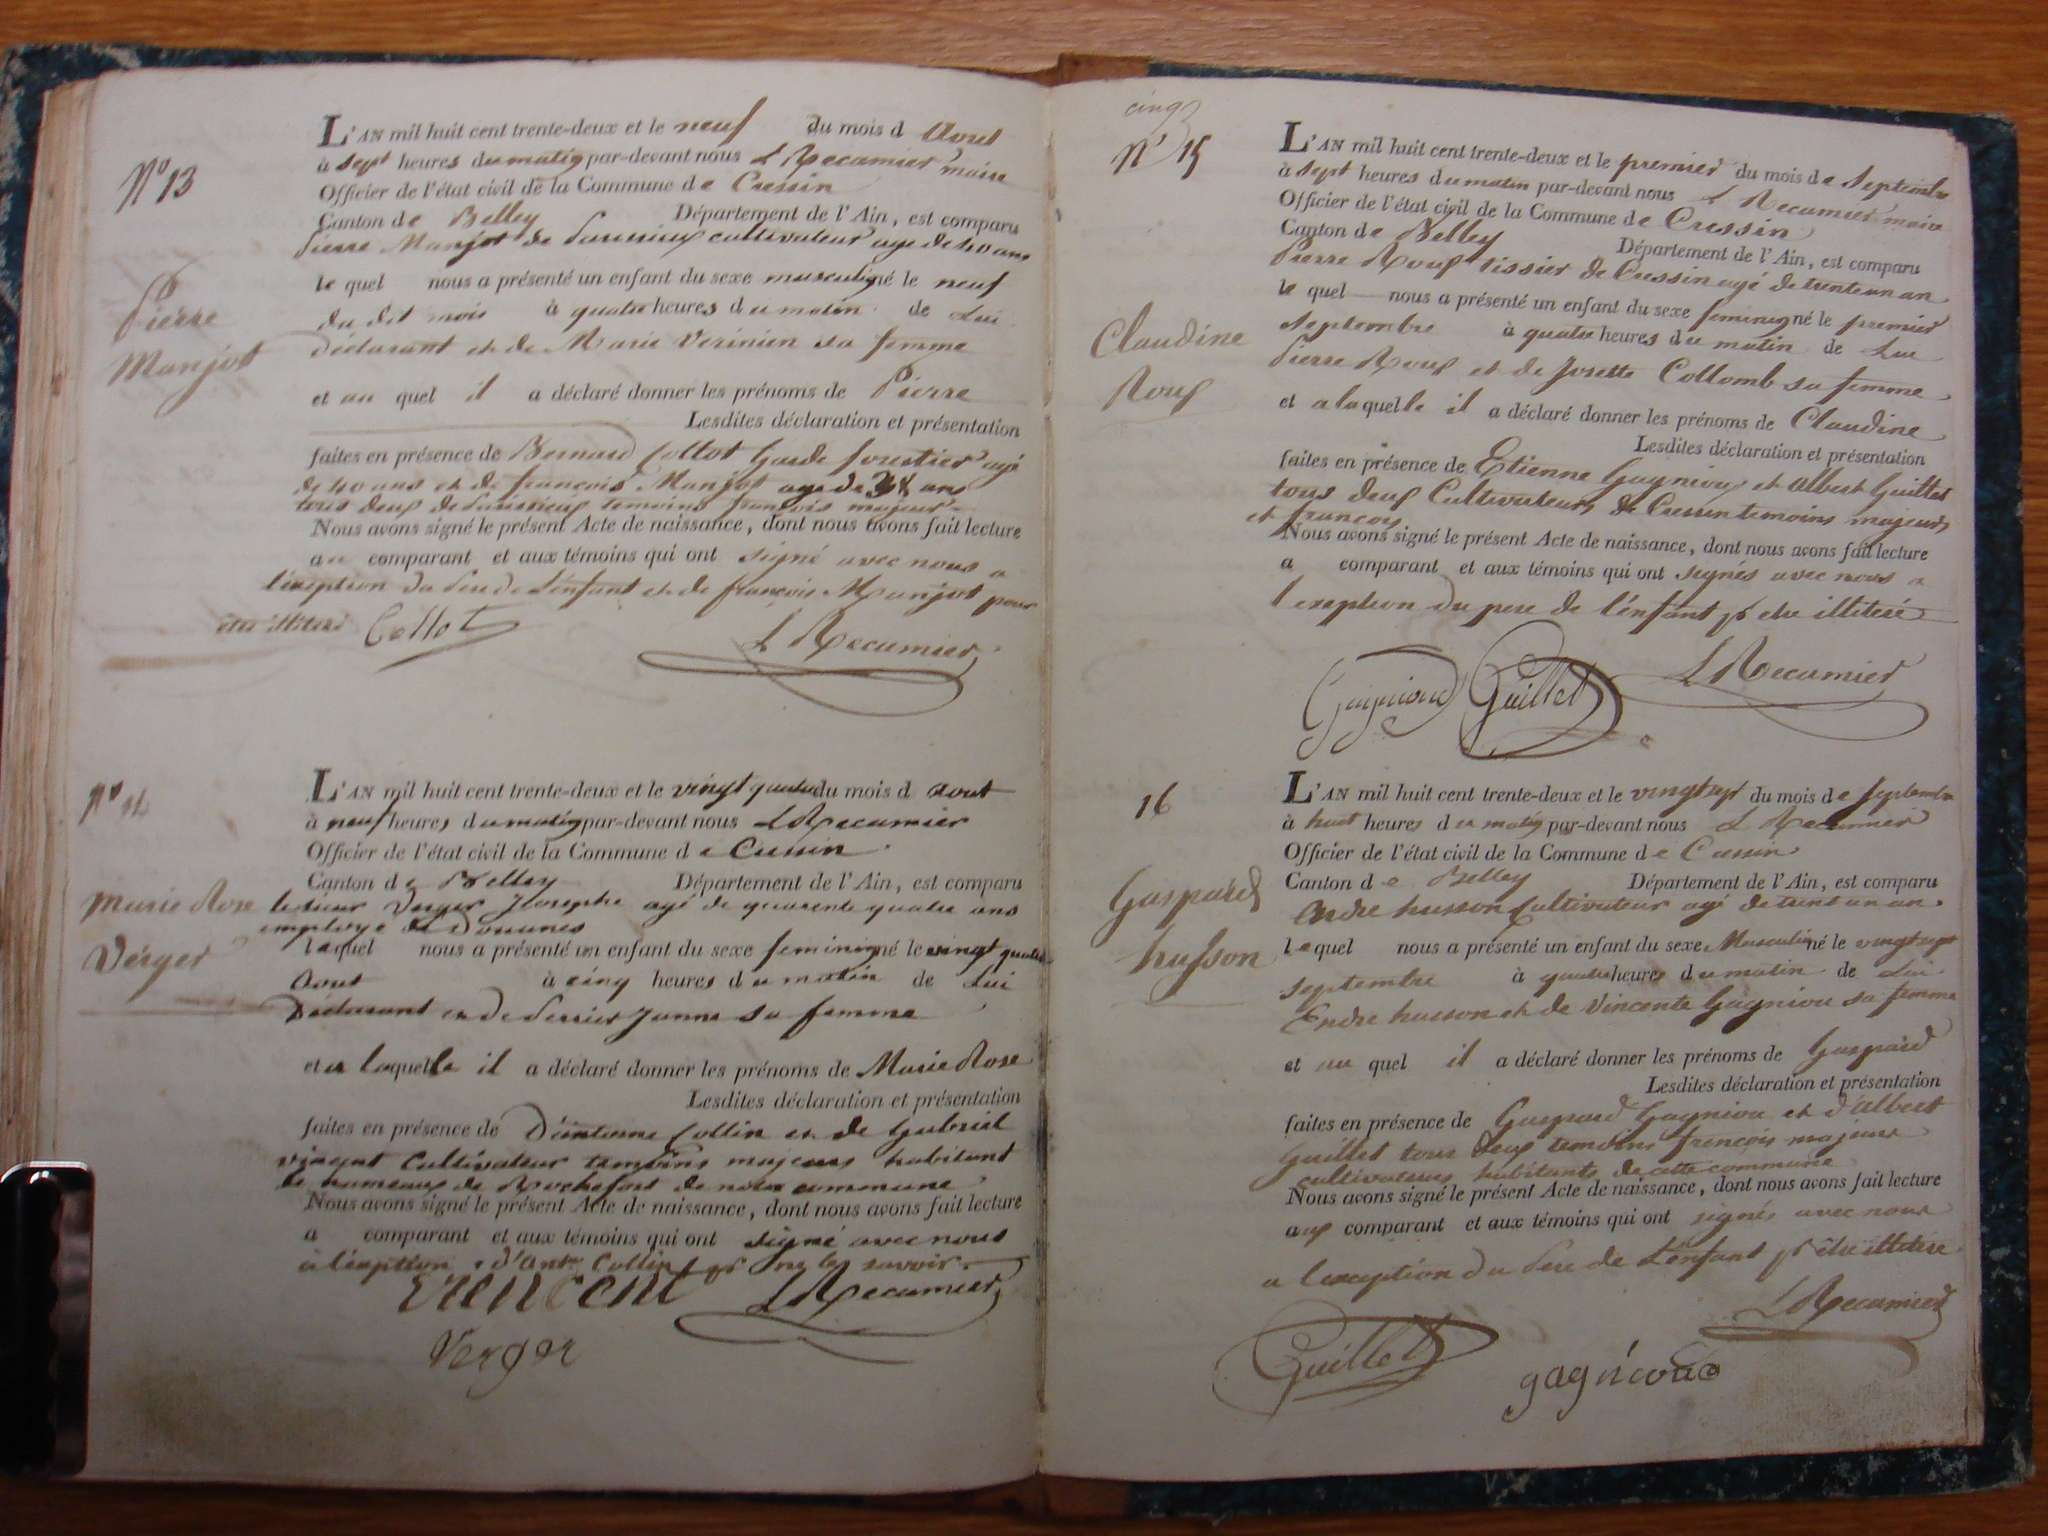 N° 13
Pierre
Manjot
L'AN mil huit cent trente-deux et le neuf du mois d Aout
à sept heures du matin par-devant nous L Recamier maire
Officier de l'état civil de la Commune de Cressin
Canton de Belley Département de l'Ain, est comparu
Pierre Manjot de cultivateur age de 40 ans
le quel nous a présenté un enfant du sexe masculin né le neuf
du dit mois à quatre heures du matin de Lui
déclarant et de Marie sa femme
et au quel il a déclaré donner les prénoms de Pierre
Lesdites déclaration et présentation
faites en présence de Bernard Collot Garde forestier agé
de 40 ans et de françois Manjot age de ans
tous deux de temoins françois majeur
Nous avons signé le présent Acte de naissance, dont nous avons fait lecture
au comparant et aux témoins qui ont signé avec nous a
l'exeption du Pere de L'enfant et de françois Manjot pour
etre illiteré Collot
L Recamier
N° 14
Marie Rose
Verger
L'AN mil huit cent trente-deux et le vingt quatre du mois d aout
à neuf heures du matin par-devant nous L Recamier
Officier de l'état civil de la Commune de Cressin
Canton de Belley Département de l'Ain, est comparu
le sieur Verger Josephe agé de quarente quatre ans
employé de Douanes
lequel nous a présenté un enfant du sexe feminin né le vingt quatre
Aout à cinq heures du matin de Lui
Déclarant et de Perrier Janne sa femme
et a laquelle il a déclaré donner les prénoms de Marie Rose
Lesdites déclaration et présentation
faites en présence de D'antoine Collin et de Gabriel
vincent Cultivateur temoins majeurs habitant
le hameaux de Rochefort de notre commune
Nous avons signé le présent Acte de naissance, dont nous avons fait lecture
a comparant et aux témoins qui ont signé avec nous
à l'exeption d'Ant. Collin pr ne le savoir
L Recamier
Verger
cinq
N° 15
Claudine
Roux
L'AN mil huit cent trente-deux et le premier du mois de Septembre
à sept heures du matin par-devant nous L Recamier maire
Officier de l'état civil de la Commune de Cressin
Canton de Belley Département de l'Ain, est comparu
Pierre Roux tissier de Cressin agé de trente un an
le quel nous a présenté un enfant du sexe feminin né le premier
Septembre à quatre heures du matin de Lui
Pierre Roux et de Josette Collomb sa femme
et a laquelle il a déclaré donner les prénoms de Claudine
Lesdites déclaration et présentation
faites en présence de Etienne Gagnioux et Albert Guillet
tous deux Cultivateurs de Cressin temoins majeurs
et francois
Nous avons signé le présent Acte de naissance, dont nous avons fait lecture
a comparant et aux témoins qui ont signés avec nous a
l'exeption du pere de l'enfant pr etre illiteré
Gagnioud Guillet L Recamier
16
Gaspard
husson
L'AN mil huit cent trente-deux et le vingt sept du mois de Septembre
à huit heures du matin par-devant nous L Recamier
Officier de l'état civil de la Commune de Cressin
Canton de Belley Département de l'Ain, est comparu
Andre husson Cultivateur agé de trent un an
lequel nous a présenté un enfant du sexe Masculin né le vingt sept
septembre à quatre heures du matin de Lui
Endre husson et de Vincente Gagniou sa femme
et au quel il a déclaré donner les prénoms de Gaspard
Lesdites déclaration et présentation
faites en présence de Gaspard Gagniou et d'albert
Guillet tous deux temoins francois majeurs
cultivateurs habitants de cette commune
Nous avons signé le présent Acte de naissance, dont nous avons fait lecture
aux comparant et aux témoins qui ont signés avec nous
a l'exception du Pere de L'enfant pr être illiteré
L Recamier
Guillet